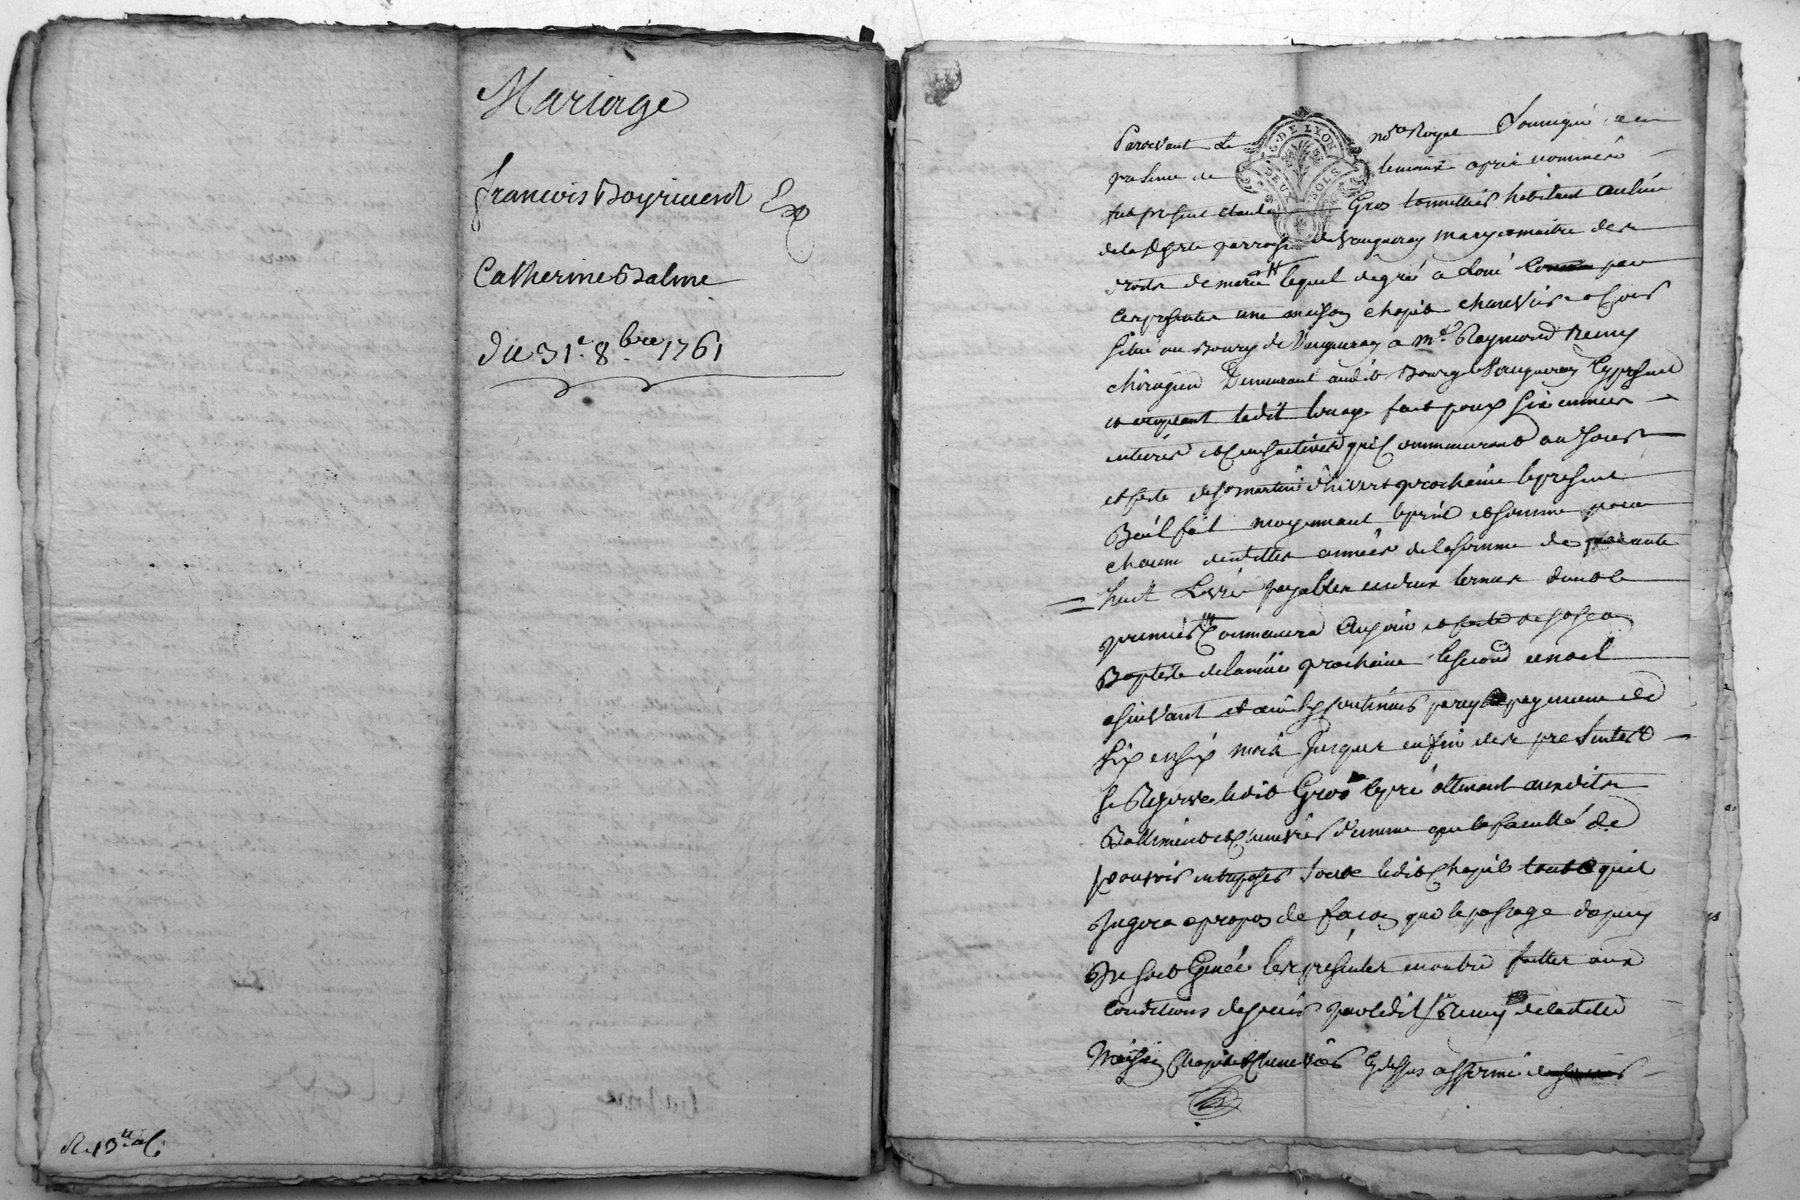 Mariage
françois Boyrivent Et
Catherine Balme
du 31.e 8.bre 1761
Pardevant Le no.re Royal Soussigné et en
presence de temoins apres nommés
fut present claude Gros tonnellier habitant au lieu
de la parroisse de Vaugneray mary et maitre des
droits de marie lequel de gré a Loué par
ces presentes une maison chapit chenevier et
situé au Bourg de Vaugneray a m.e Raymond Remy
chirugien Demeurant audit Bourg de Vaugneray Cy present
et acceptant ledit louage fait pour six années
entieres et consecutives qui Commenceront au Jour
et feste de st martin d'hivert prochaine le present
Beil fait moyennant le prix et somme pour
chacune desdittes années de la somme de
huit Livres payables en deux termes dont le
premier Commencera Au jour et feste de st Jean
Baptiste de l'année prochaine le second a noel
suivant et ainsy continuer payement de
six en six mois Jusques en fin des presentes
se Reserve ledit Gros le pré attenant auxdits
Battiments et chenevier de meme que la faculté de
pouvoir entreposer sous ledit Chapit tout ce quil
Jugera apropos de façon que le passage
Ne soit Gené les presentes en outre faittes aux
Conditions par ledit Sr Remy de laditte
Maison Chapit et Chenevier Cy dessus affermé
DE LYON
DEUX SOLS